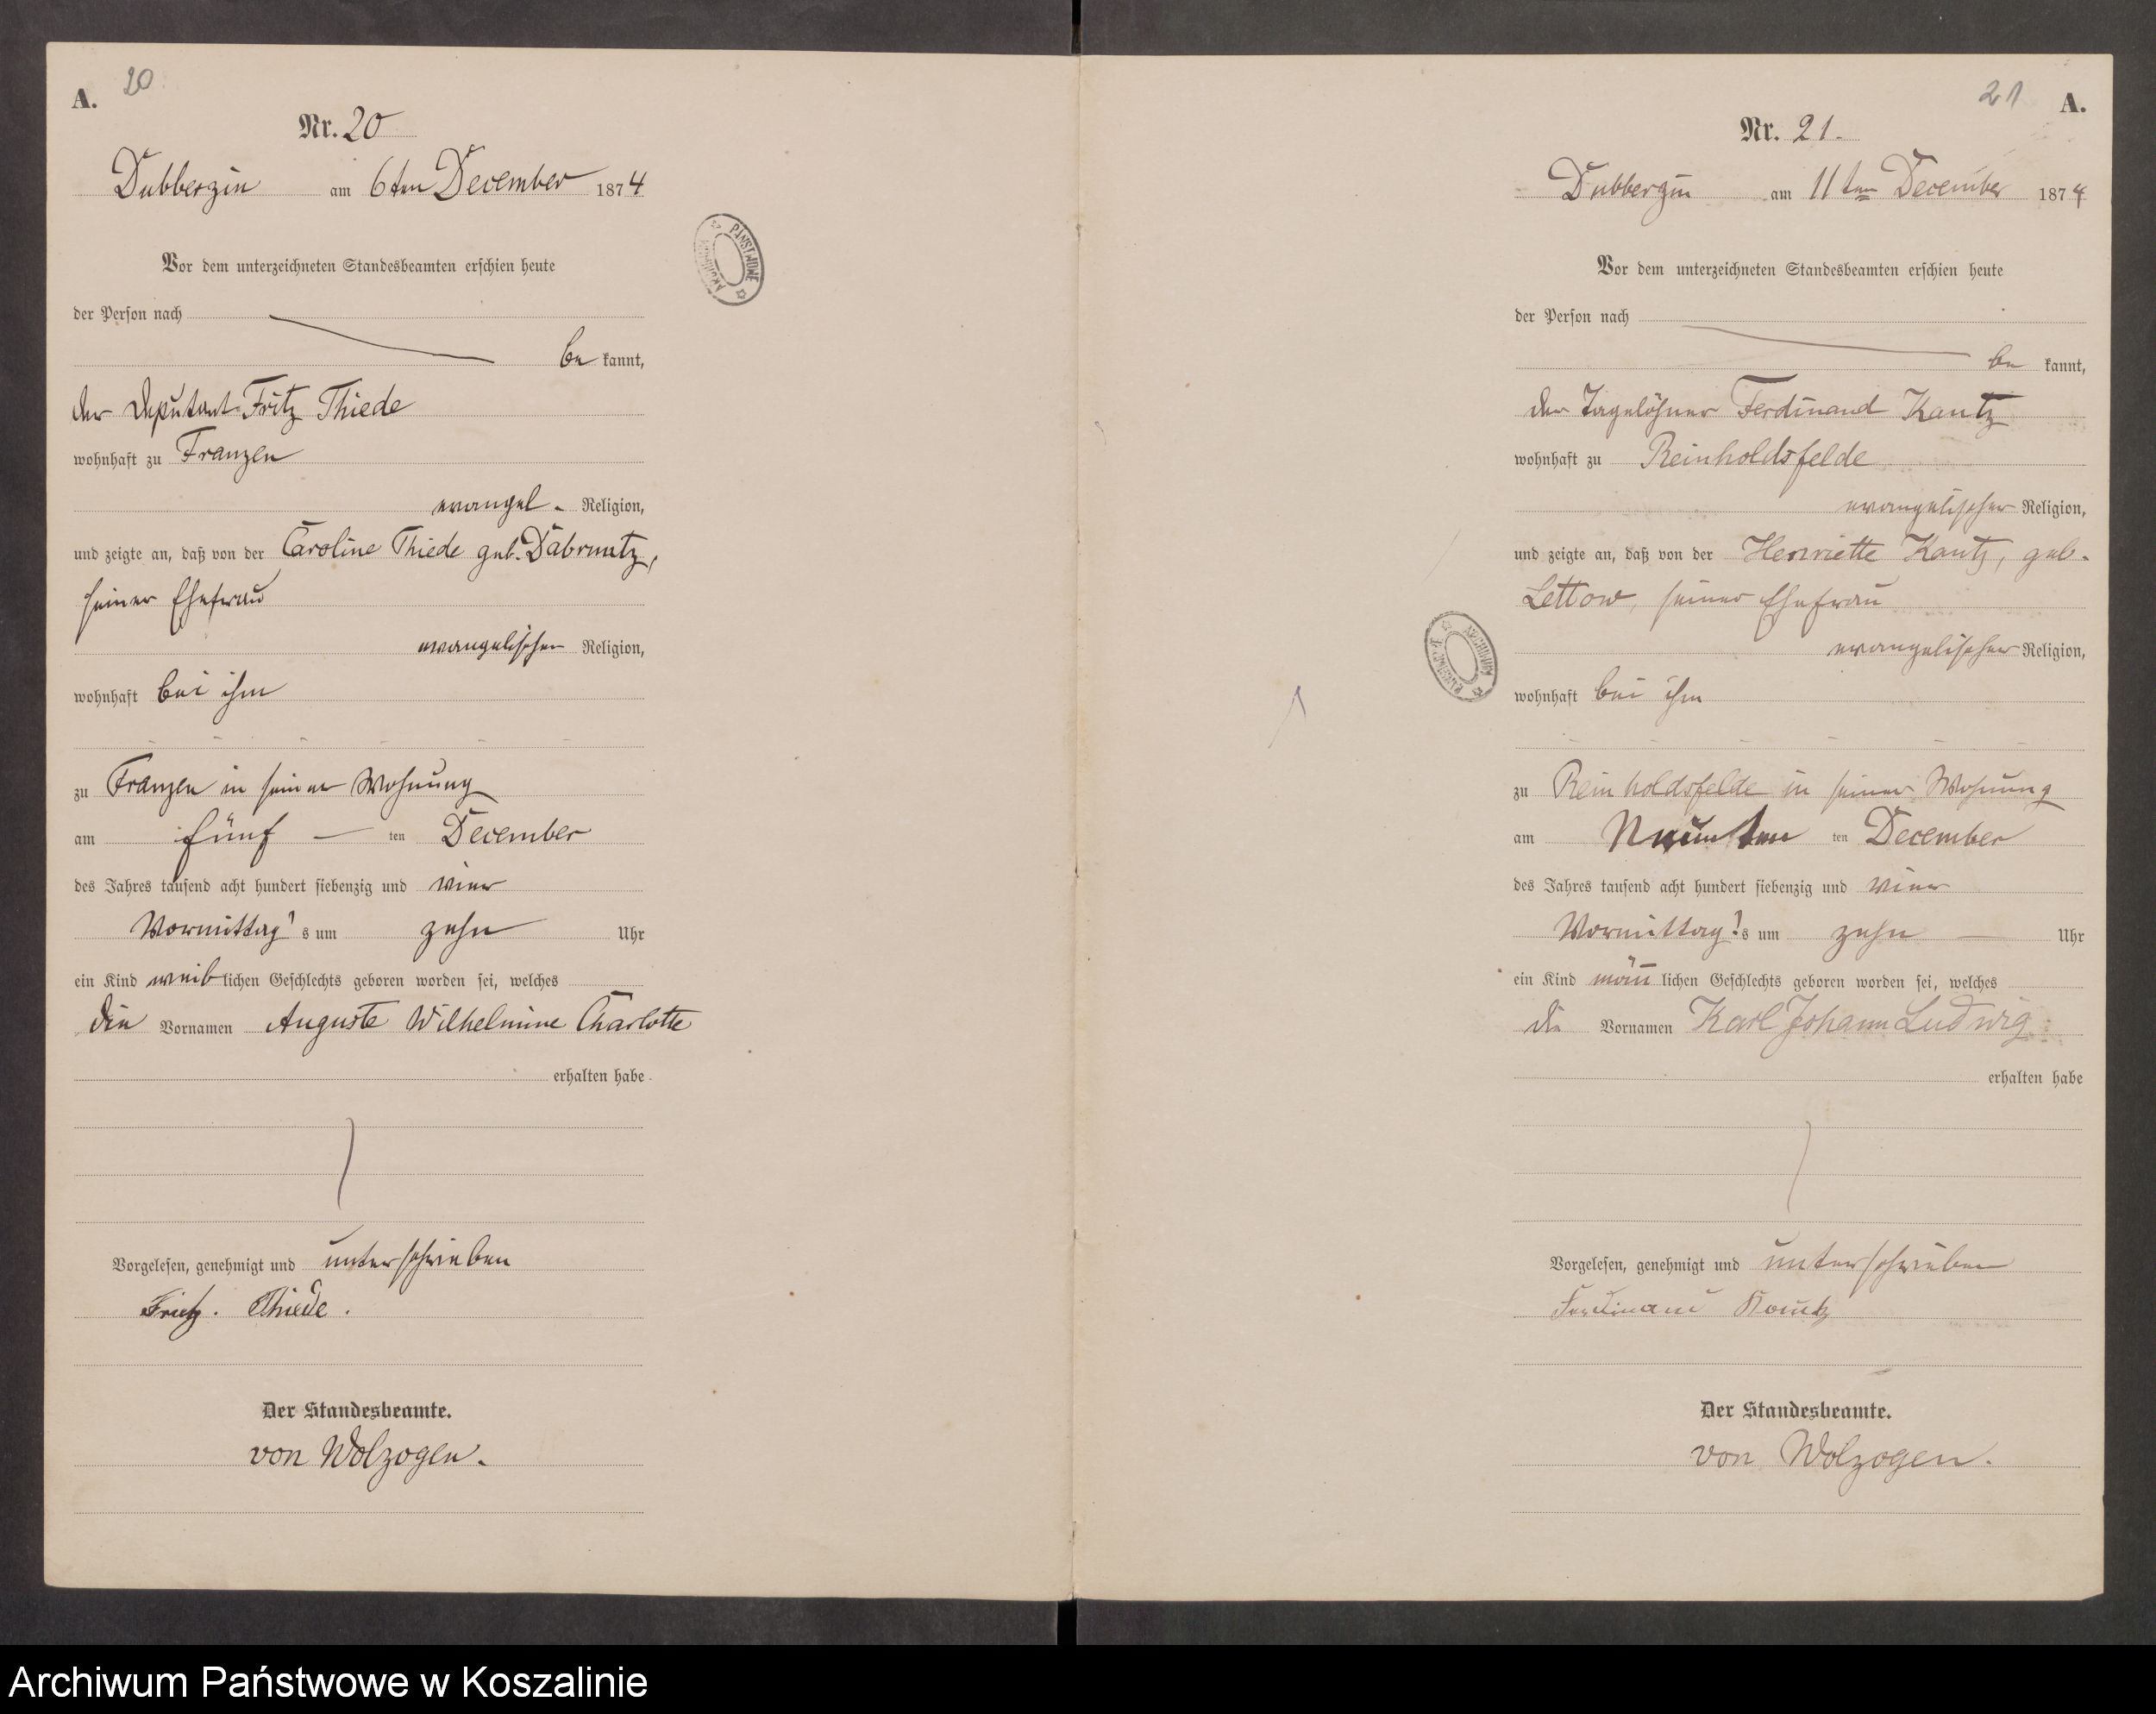 A. 20
Nr. 20
Dubberzin am 6ten December 1874
Vor dem unterzeichneten Standesbeamten erschien heute
der Person nach
be kannt,
der Deputant Fritz Thiede
wohnhaft zu Franzen
evangel. Religion,
und zeigte an, daß von der Caroline Thiede geb. Dabruntz,
seiner Ehefrau
evangelischer Religion,
wohnhaft bei ihm
zu Franzen in seiner Wohnung
am fünf ten December
des Jahres tausend acht hundert siebenzig und vier
Vormittag's um zehn Uhr
ein Kind weiblichen Geschlechts geboren worden sei, welches
die Vornamen Auguste Wilhelmine Charlotte
erhalten habe
Vorgelesen, genehmigt und unterschrieben
Fritz. Thiede.
Der Standesbeamte.
von Wolzogen.
PAŃSTWOWE ARCHIWUM
21 A.
Nr. 21.
Dubberzin am 11ten December 1874
Vor dem unterzeichneten Standesbeamten erschien heute
der Person nach
be kannt,
der Tagelöhner Ferdinand Kautz
wohnhaft zu Reinholdsfelde
evangelischer Religion,
und zeigte an, daß von der Henriette Kautz, geb.
Lettow, seiner Ehefrau
evangelischer Religion,
wohnhaft bei ihm
zu Reinholdsfelde in seiner Wohnung
am Neunten ten December
des Jahres tausend acht hundert siebenzig und vier
Vormittag's um zehn Uhr
ein Kind männlichen Geschlechts geboren worden sei, welches
die Vornamen Karl Johann Ludwig
erhalten habe
Vorgelesen, genehmigt und unterschrieben
Ferdinand Kautz
Der Standesbeamte.
von Wolzogen.
ARCHIWUM PAŃSTWOWE
Archiwum Państwowe w Koszalinie